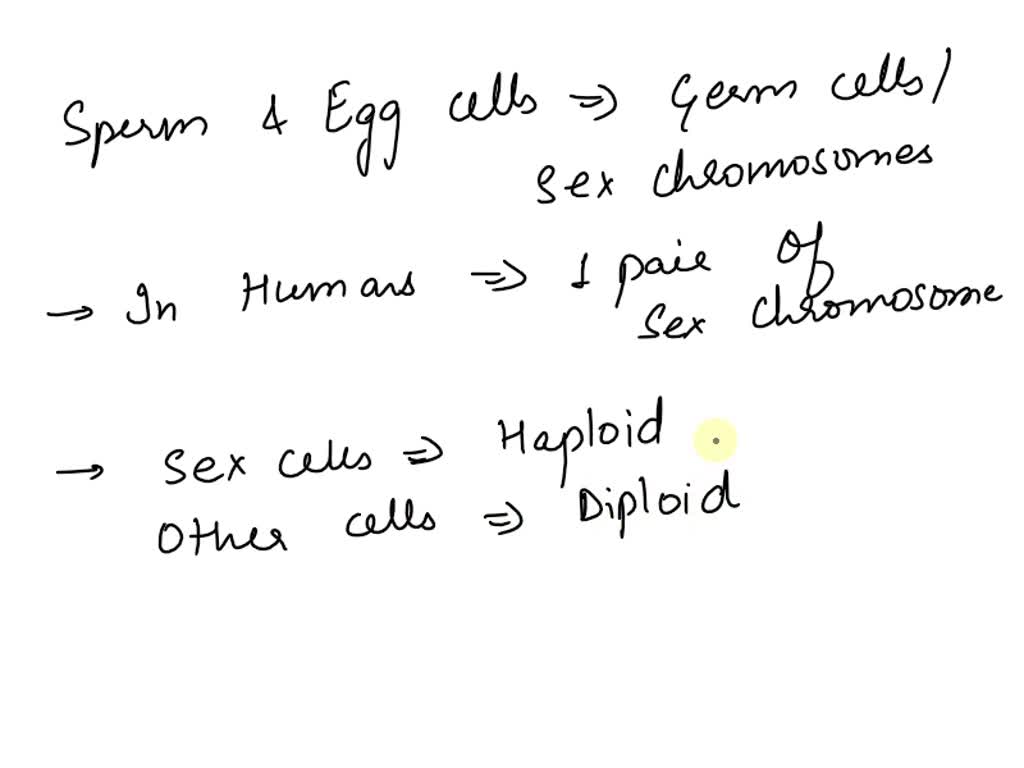 Sperm & Egg cells ⇒ Germ cells/
Sex chromosomes
→ In Humans ⇒ 1 pair of
Sex chromosome
→ Sex cells ⇒ Haploid
Other cells ⇒ Diploid